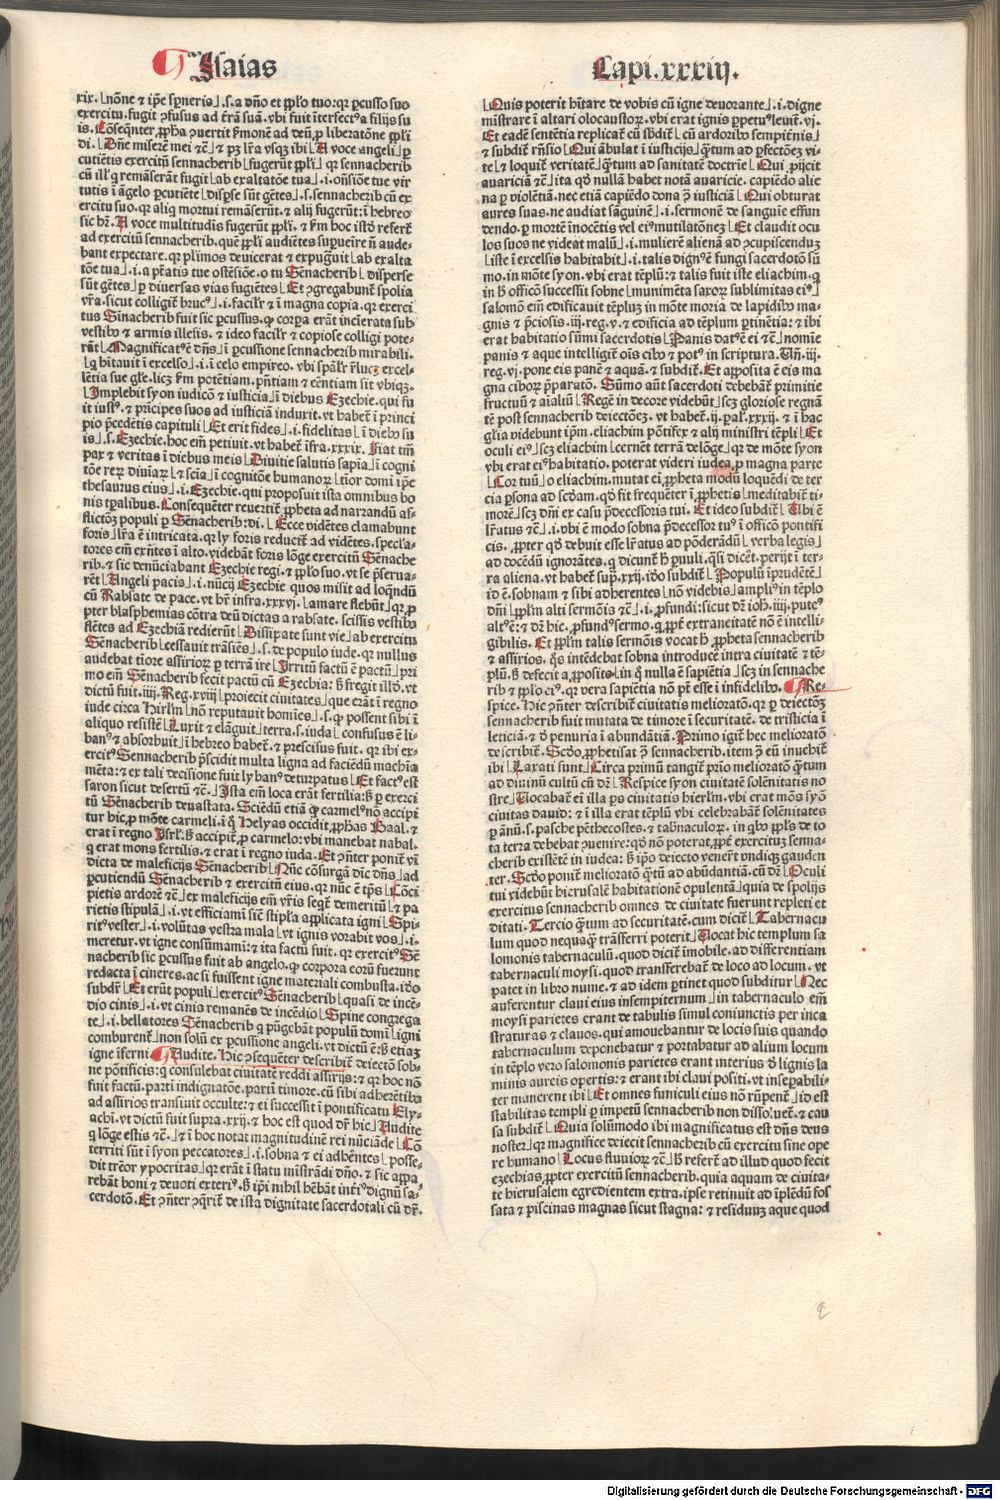 Isaias
Capi. xxxiij.
xix. nõne ⁊ ip̃e sp̃neris .s. a dño et pp̃lo tuo: qꝛ pcusso suo
exercitu. fugit ꝯfusus ad t̃rã suã. vbi fuit ĩterfect⁹ a filijs su
is. Cõseq̃nter ꝓp̃ha ꝯuertit sermonẽ ad deũ ꝓ liberatõne pp̃li
di. Dñe miserẽ mei ⁊c̃
cutiẽtis exercitũ sennacherib fugerũt pp̃li qꝛ sennacherib
cũ illis q remãserãt fugit ab exaltatõe tua .i. oñsiõe tue vir
tutis ĩ ãgelo ꝑcutiẽte disp̃se sũt gẽtes .s. sennacherib cũ ex
ercitu suo. qꝛ aliq̃ mortui remãserũt. ⁊ alij fugerũt: ĩ hebreo
sic hr̃. A voce multitudĩs fugerũt pp̃li. ⁊ s̃m hoc istd̃ refert̃
ad exercitũ sennacherib. quẽ pp̃li audiẽtes supueire ñ aude-
bant expectare. qꝛ pl̃imos deuicerat ⁊ expugͣuit ab exalta
tõe tua .i. a p̃tatis tue ostẽsiõe. o tu Sẽnacherib disperse
sũt gẽtes ꝑ diuersas vias fugiẽtes Et ꝯgregabunt̃ spolia
vr̃a. sicut colligit̃ bruc⁹ .i. facilr̃ ⁊ ĩ magna copia. qꝛ exerci
tus Sĩnacherib fuit sic ꝑcussus. ꝙ corpa erãt incĩerata sub
vestib⁹ ⁊ armis illesis. ⁊ ideo facilr̃ ⁊ copiose colligi pote-
rãt Magnificat⁹ ẽ dñs ĩ ꝑcussione sennacherib mirabili.
q hĩtauit ĩ excelso .i. ĩ celo empireo. vbi sp̃alr̃ r̃luc₃ excel-
lẽtia sue gl̃e. licꝫ s̃m potẽtiam. p̃ntiam ⁊ eẽntiam sit vbiqꝫ.
Implebit syon iudicõ ⁊ iusticia ĩ diebus Ezechie. qui fu
it iust⁹. ⁊ p̃ncipes suos ad iusticiã induxit. vt habet̃ ĩ princi
pio p̃cedẽtis capituli Et erit fides .i. fidelitas ĩ dieb⁹ tu
is .s. Ezechie. hoc em̃ petiuit. vt habet̃ ĩfra. xxxix. Fiat tm̃
pax ⁊ veritas ĩ diebus meis Diuitie salutis sapĩa ĩ cogni
tõe reꝝ diuĩaꝝ ⁊ scĩa ĩ cognitõe humanoꝝ tĩor domĩ ip̃e
thesaurus eius .i. Ezechie. qui proposuit ista omnibus bo
nis tp̃alibus. Consequẽter reuertit̃ ꝓpheta ad narrandũ af-
flictõꝫ populi ꝑ Sẽnacherib: di. Ecce vidẽtes clamabunt
foris lr̃a ẽ intricata. qꝛ ly foris reducit̃ ad vidẽtes. specĩa-
tores em̃ exñtes ĩ alto. videbãt foris lõge exercitũ Sẽnache
rib. ⁊ sic denũciabant Ezechie regi. ⁊ pp̃lo suo. vt se p̃serua-
rẽt Angeli pacis .i. nũcij Ezechie quos misit ad loq̃ndũ
cũ Rabsate de pace. vt hr̃ infra. xxxvj. amare flebũt qꝛ ꝓ
pter blasphemias cõtra deũ dictas a rabsate. scissis vestib⁹
flẽtes ad Ezechiã redierũt Dissipate sunt vie ab exercitu
Sẽnacherib cessauit trãsiẽs .s. de populo iude. qꝛ nullus
audebat tĩore assirioꝝ ꝑ terrã ire Irritũ factũ ẽ pactũ pri
mo em̃ Sẽnacherib fecit pactũ cũ Ezechia: s̃ fregit illd̃. vt
dictũ fuit. iiij. Reg. xviij proiecit ciuitates que erãt ĩ regno
iude circa Hirlm̃ nõ reputauit homĩes .s. ꝙ possent sibi ĩ
aliquo resistẽ Luxit ⁊ elãguit terra .s. iuda confusus ẽ li-
ban⁹ ⁊ absorbuit ĩ hebreo habet̃. ⁊ prescisus fuit. qꝛ ibi ex-
ercit⁹ Sennacherib p̃scidit multa ligna ad faciẽdũ machĩa
mẽta: ⁊ ex tali decisione fuit lyban⁹ deturpatus Et fact⁹ est
saron sicut desertũ ⁊c̃. Ista em̃ loca erãt fertilia: s̃ ꝑ exerci
tũ Sẽnacherib deuastata. Sciẽdũ etiã ꝙ carmel⁹ nõ accipi
tur hic ꝓ mõte carmeli. ĩ q̃ Helyas occidit ꝓp̃has Baal. ⁊
erat ĩ regno Isrl̃. s̃ accipit̃ ꝓ carmelo: vbi manebat nabal.
q erat mons fertilis. ⁊ erat ĩ regno iuda. Et ꝯñter ponit̃ vĩ
dicta de maleficijs Sẽnacherib Nũc cõsurgã dic̃ dñs ad
ꝑcutiendũ Sẽnacherib ⁊ exercitũ eius. qꝛ nũc ẽ tp̃s Cõci
pietis ardorẽ ⁊c̃ ex maleficijs em̃ vr̃is seqt̃ demeritũ ⁊ pa
rietis stipulã .i. vt efficiamĩ siẽt stip̃la applicata igni Spi-
rit⁹ vester .i. volũtas vestra mala vt ignis vorabit vos .i.
meretur. vt igne consũmamĩ: ⁊ ita factũ fuit. qꝛ exercit⁹ Sẽ
nacherib sic ꝑcussus fuit ab angelo. ꝙ corpora eorũ fuerunt
redacta ĩ cineres. ac si fuissent igne materiali combusta. id̃o
subdr̃ Et erũt populi exercit⁹ Sẽnacherib quasi de incẽ-
dio cinis .i. vt cinis remanẽs de incẽdio Spine congrega
te .i. bellatores Sẽnacherib q pũgebãt populũ domĩ igni
comburent̃ non solũ ex ꝑcussione angeli. vt dictũ ẽ: s̃ etiaꝫ
igne ĩferni. Audite. Hic ꝯsequẽter describit̃ deiectõ sob-
ne põtificis: q consulebat ciuitatẽ reddi assirijs: ⁊ qꝛ hoc nõ
fuit factũ. partĩ indignatõe. partĩ timore. cũ sibi adherẽtib⁹
ad assirios transiuit occulte: ⁊ ei successit ĩ pontificatu Ely-
achĩ. vt dictũ fuit supra. xxij. ⁊ hoc est quod dr̃ hic Audite
q lõge estis ⁊c̃. ⁊ ĩ hoc notat magnitudinẽ rei nũciãde Cõ
territi sũt ĩ syon peccatores .i. sobna ⁊ ei adhẽntes posse-
dit tremor ypocritas qꝛ erãt ĩ statu mĩstrãdi dño. ⁊ sic appa-
rebãt boni ⁊ deuoti exteri⁹. s̃ ip̃i nihil hẽbãt int̃i⁹ dignũ sa-
cerdotõ. Et ꝯñter q̃rit̃ de ista dignitate sacerdotali cũ dr̃.
Quis poterit hĩtare de vobis cũ igne deuorante .i. digne
mĩstrare ĩ altari olocaustoꝝ. vbi erat ignis ꝑpetu⁹ leuit̃. vj.
Et eadẽ sentẽtia replicat̃ cũ sb̃dit̃ cũ ardorib⁹ sempiẽnis
⁊ subdit̃ rñsio Qui ãbulat ĩ iusticijs q̃tum ad ꝑfectõeꝫ vi-
te ⁊ loquit̃ veritatẽ q̃tum ad sanitatẽ doctrĩe Qui ꝓijcit
auariciã ⁊c̃ ita qd̃ nullã habet notã auaricie. capiẽdo alie
na ꝑ violẽtiã. nec etiã capiẽdo dona ꝯ̃ iusticiã Qui obturat
aures suas. ne audiat sãguinẽ .i. sermonẽ de sanguĩe effun
dendo. ꝑ mortẽ inocẽtis vel ei⁹ mutilatõneꝫ Et claudit ocu
los suos ne videat malũ .i. mulierẽ alienã ad ꝯcupiscenduꝫ
iste ĩ excelsis habitabit .i. talis dign⁹ ẽ fungi sacerdotõ sũ
mo. in mõte syon. vbi erat tẽplũ: ⁊ talis fuit iste eliachim. q
in h̃ officõ successit sobne munimẽta saxoꝝ sublimitas ei⁹
salomõ em̃ edificauit tẽpluꝫ in mõte moria de lapidib⁹ ma-
gnis ⁊ p̃ciosis. iij. reg. v. ⁊ edificia ad tẽplum ꝑtinẽtia: ⁊ ibi
erat habitatio sũmi sacerdotis Panis dat⁹ ẽ ei ⁊c̃ nomĩe
panis ⁊ aque intelligit̃ oĩs cib⁹ ⁊ pot⁹ in scriptura. Vñ. iij.
reg. vj. pone eis panẽ ⁊ aquã. ⁊ subdit̃. Et apposita ẽ eis ma
gna ciboꝝ p̃paratõ. Sũmo aũt sacerdoti debebãt̃ primitie
fructuũ ⁊ aĩaliũ Regẽ in decore videbũt scꝫ gloriose regnã
tẽ post sennacherib deiectõeꝫ. vt habet̃. ij. pal. xxxij. ⁊ ĩ hac
gl̃ia videbunt ip̃m. eliachim põtifex ⁊ alij ministri tẽpli Et
oculi ei⁹ scꝫ eliachim cernẽt terrã delõge qꝛ de mõte syon
vbi erat ei⁹ habitatio. poterat videri iudea ꝓ magna parte
Cor tuũ o eliachim. mutat ei ꝓpheta modũ loquẽdi de ter
cia ꝑsona ad scd̃am. qd̃ fit frequẽter ĩ ꝓphetis meditabit̃ ti-
morẽ scꝫ dñi ex casu p̃decessoris tui. Et ideo subdit̃ Ubi ẽ
lr̃atus ⁊c̃ .i. vbi ẽ modo sobna p̃decessor tu⁹ ĩ officõ pontifi
cis. ꝓpter qd̃ debuit esse lr̃atus ad põderãdũ verba legis
ad docẽdũ ignorãtes. q dicunt̃ h̃ ꝑuuli. q̃si dicẽt. perijt ĩ ter-
ra aliena. vt habet̃ sup̃. xxij. id̃o subdit̃ Populũ ĩprudẽtẽ
id ẽ. sobnam ⁊ sibi adherentes nõ videbis ampli⁹ in tẽplo
dñi pp̃lm alti sermõis ⁊c̃ .i. ꝓfundi: sicut dr̃ ioh̃. iiij. pute⁹
alt⁹ ẽ: ⁊ dr̃ hic. ꝓfund⁹ sermo. q ꝓpt̃ extraneitatẽ nõ ẽ intelli-
gibilis. Et pp̃lm talis sermõis vocat h̃ ꝓpheta sennacherib
⁊ assirios. q̃s intẽdebat sobna introducẽ intra ciuitatẽ ⁊ tẽ-
plũ. s̃ defecit a ꝓposito in q̃ nulla ẽ sapiẽtia scꝫ in sennache
rib ⁊ pp̃lo ei⁹. qꝛ vera sapiẽtia nõ p̃t esse ĩ infidelib⁹. Re-
spice. Hic ꝯñter describit̃ ciuitatis melioratõ. qꝛ ꝑ deiectõꝫ
sennacherib fuit mutata de timore ĩ securitatẽ. de tristicia ĩ
leticiã. ⁊ d̃ penuria ĩ abundãtiã. Primo igit̃ hec melioratõ
describit̃. Scd̃o ꝓphetisat ꝯ̃ sennacherib. item ꝯ̃ eũ inuehit̃
ibi Laxati sunt Circa primũ tangit̃ prĩo melioratõ q̃tum
ad diuinũ cultũ cũ dr̃ Respice syon ciuitatẽ solẽnitatis no
stre Uocabat̃ ei illa ꝑs ciuitatis hierlm̃. vbi erat mõs syõ
ciuitas dauid: ⁊ ĩ illa erat tẽplũ vbi celebrabãt̃ solẽnitates
ꝑ ãnũ .s. pasche pẽthecostes. ⁊ tab̃naculoꝝ. in qb⁹ pp̃ls de to
ta terra debebat ꝯuenire: qd̃ nõ poterat ꝓpt̃ exercituꝫ senna-
cherib existẽtẽ in iudea: s̃ ip̃o deiecto venerũt vndiqꝫ gauden
ter. Scd̃o ponit̃ melioratõ q̃tũ ad abũdantiã. cũ dr̃ Oculi
tui videbũt hierusalẽ habitationẽ opulentã quia de spolijs
exercitus sennacherib omnes de ciuitate fuerunt repleti et
ditati. Tercio q̃tum ad securitatẽ. cum dicit̃ Tabernacu
lum quod nequaqꝫ trãsferri poterit Uocat hic templum sa
lomonis tabernaculũ. quod dicit̃ ĩmobile. ad differentiam
tabernaculi moysi. quod transferebat̃ de loco ad locum. vt
patet in libro nume. ⁊ ad idem ꝑtinet quod subditur Nec
auferentur claui eius insempiternum in tabernaculo em̃
moysi parietes erant de tabulis simul coniunctis per inca
straturas ⁊ clauos. qui amouebantur de locis suis quando
tabernaculum deponebatur ⁊ portabatur ad alium locum
in tẽplo vero salomonis parietes erant interius d̃ lignis la
minis aureis opertis: ⁊ erant ibi claui positi. vt insepabili-
ter manerent ibi Et omnes funiculi eius nõ rũpent̃ id est
stabilitas templi ꝑ impetũ sennacherib non dissoluet̃. ⁊ cau
sa subdit̃ Quia solũmodo ibi magnificatus est dñs deus
noster qꝛ magnifice deiecit sennacherib cũ exercitu sine ope
re humano Locus fluuioꝝ ⁊c̃ h̃ refert̃ ad illud quod fecit
ezechias ꝓpter exercitũ sennacherib. quia aquam de ciuita-
te hierusalem egredientem extra. ipse retinuit ad ĩplẽdũ fos
sata ⁊ piscinas magnas sicut stagna: ⁊ residuuꝫ aque quod
Digitalisierung gefördert durch die Deutsche Forschungsgemeinschaft - DFG